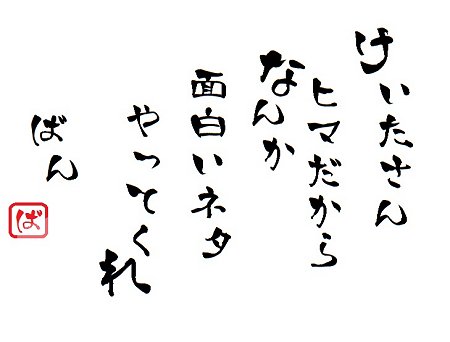 けいたさん
ヒマだから
なんか
面白いネタ
やってくれ
ばん
ば